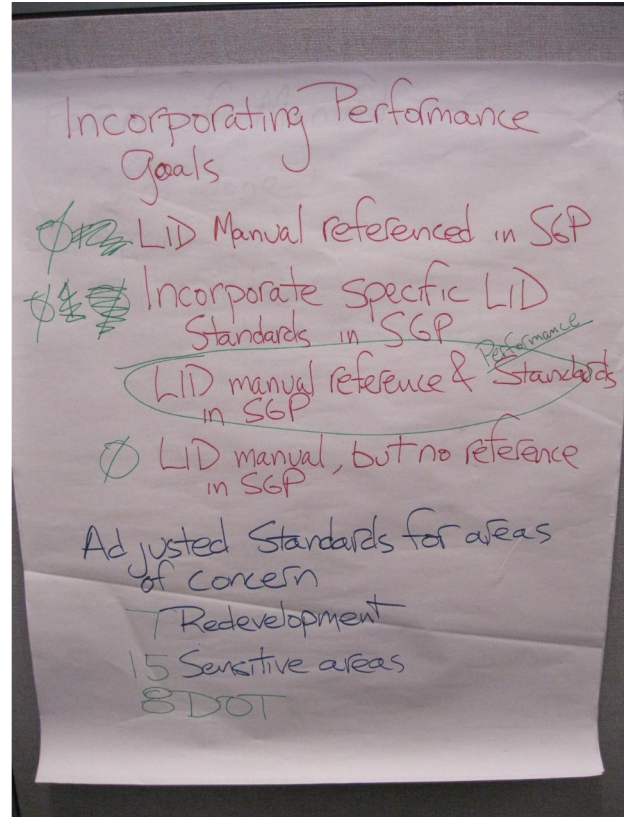 Incorporating Performance
Goals
Ø LID Manual referenced in SGP
Ø Incorporate specific LID
Standards in SGP
Performance
LID manual reference & Standards
in SGP
Ø LID manual, but no reference
in SGP
Adjusted Standards for areas
of concern
7 Redevelopment
15 Sensitive areas
8 DOT